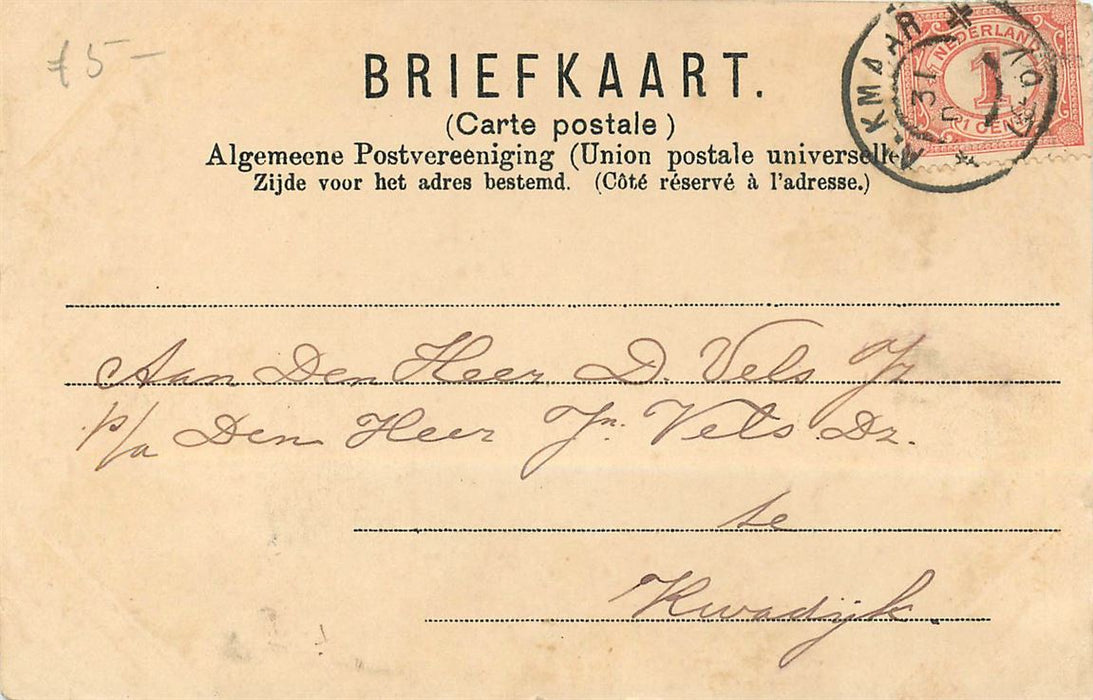 £5-
BRIEFKAART.
(Carte postale)
Algemeene Postvereeniging (Union postale universelle)
Zijde voor het adres bestemd. (Côté réservé à l'adresse.)
ALKMAAR
NEDERLAND
1
1 CENT
Aan Den Heer D. Vels Jz
p/a Den Heer Jn. Vels Dz.
te
Kwadijk.